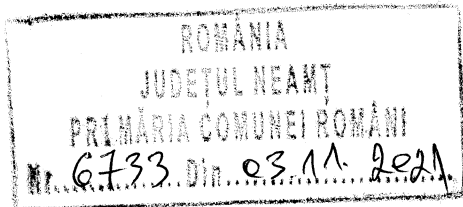 ROMÂNIA
JUDEȚUL NEAMȚ
PRIMĂRIA COMUNEI ROMÂNI
Nr. 6733 Din 03.11.2021